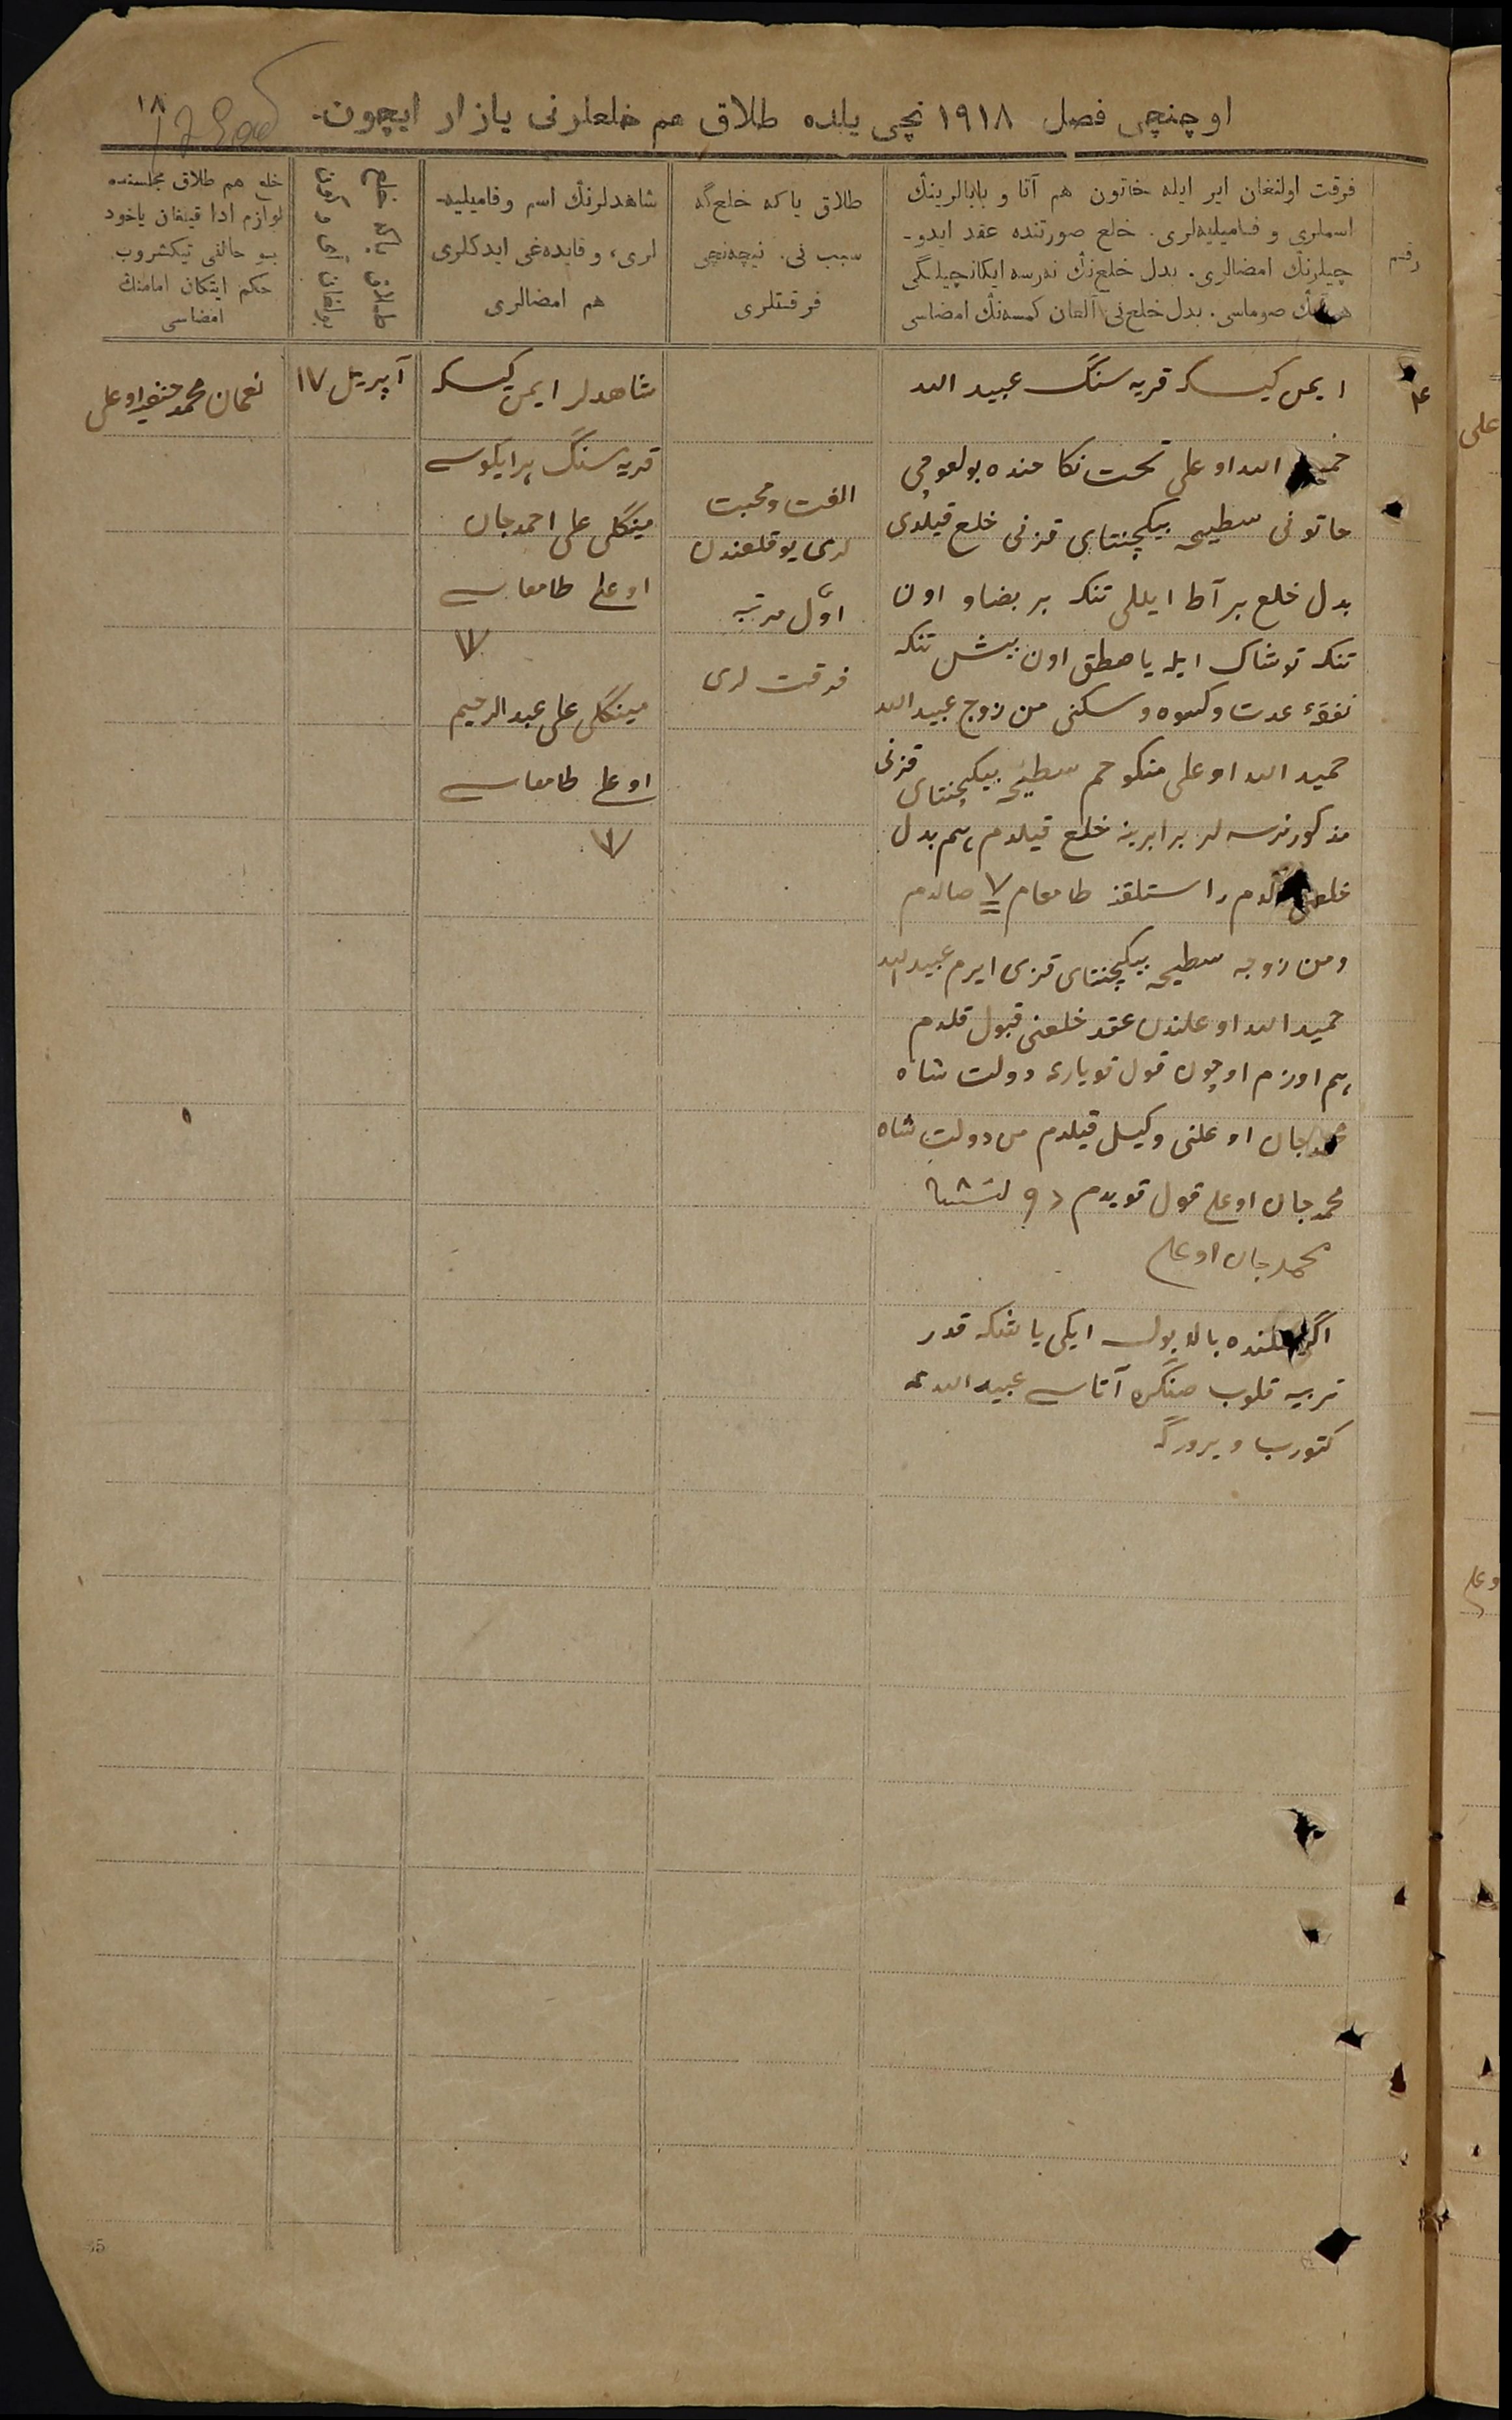 ١٨
اوچنچی فصل ١٩١٨ نچی یلده طلاق هم خلعلرنی یازار ایچون.
رقم
فرقت اولنغان ایر ایله خاتون هم آتا و بابالرینڭ
اسملری و فامیلیه‌لری. خلع صورتنده عقد ایدو-
چیلرنڭ امضالری. بدل خلع‌نڭ نه‌رسه ایکانچیلگی
صوماسی. بدل خلع‌نی آلغان کمسه‌نڭ امضاسی
طلاق یاکه خلع‌گه
سبب نی. نیچه‌نچی
فرقتلری
شاهدلرنڭ اسم و فامیلیه-
لری، و فایده‌غی ایدکلری
هم امضالری
خلع یاکه طلاق
بولغان آی و کون
خلع هم طلاق مجلسنده
لوازم ادا قیلغان یاخود
بو حالنی تیکشروب
حکم ایتکان امامنڭ
امضاسی
ایمن کیسکه قریه سنڭ عبید الله
الله اوغلی تحت نکاحنده بولغوچی
خاتونی سطیحه بیکچنتای قزنی خلع قیلدی
بدل خلع بر آط ایللی تنکه بر بضاو اون
تنکه توشاک ایله یاصطق اون بیش تنکه
نفقهٔ عدت و کسوه و سکنی من زوج عبید الله
حمید الله اوغلی منکوحم سطیحه بیکچنتای قزنی
مذکور نرسه لر برابرینه خلع قیلدم هم بدل
آلدم راستلقغه طامغام ٧ صالدم
و من زوجه سطیحه بیکچنتای قزی ایرم عبید الله
حمید الله اوغلندن عقد خلعنی قبول قلدم
هم اوزم اوچون قول قویارغه دولت شاه
محمد جان اوغلنی وکیل قیلدم من دولت شاه
محمد جان اوغلی قول قویدم
محمد جان اوغلی
اگر بالا بولسه ایکی یاشکه قدر
تربیه قلوب صنگره آتاسی عبید الله غه
کتورب ویرورگه
الفت و محبت
لری یوقلغندن
اوّل مرتبه
فرقت لری
شاهدلر ایمن کیسکه
قریه سنڭ هر ایکوسی
مینگلی علی احمد جان
اوغلی طامغاسی
٧
مینگلی علی عبد الرحیم
اوغلی طامغاسی
٧
آپریل ١٧
نعمان محمد اوغلی